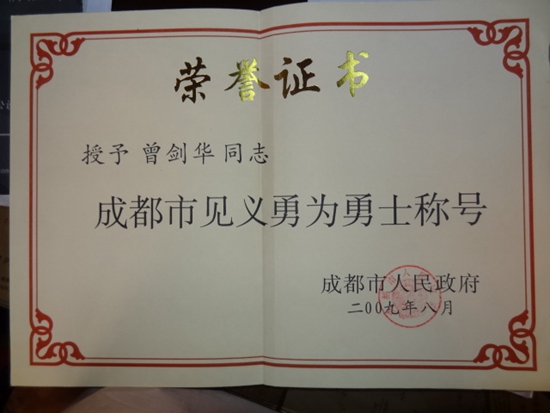 荣誉证书
授予 曾剑华 同志
成都市见义勇为勇士称号
成都市人民政府
二00九年八月